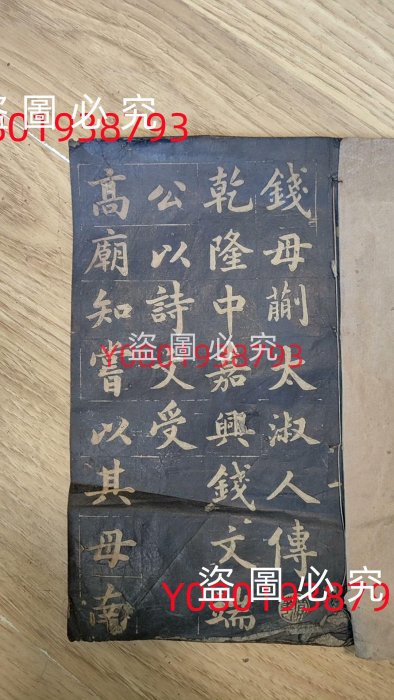 錢母蒯太淑人傳
乾隆中嘉興錢文端
公以詩文受
高廟知嘗以其母南
盜圖必究
Y6801938793
盜圖必究
Y6801938793
盜圖必究